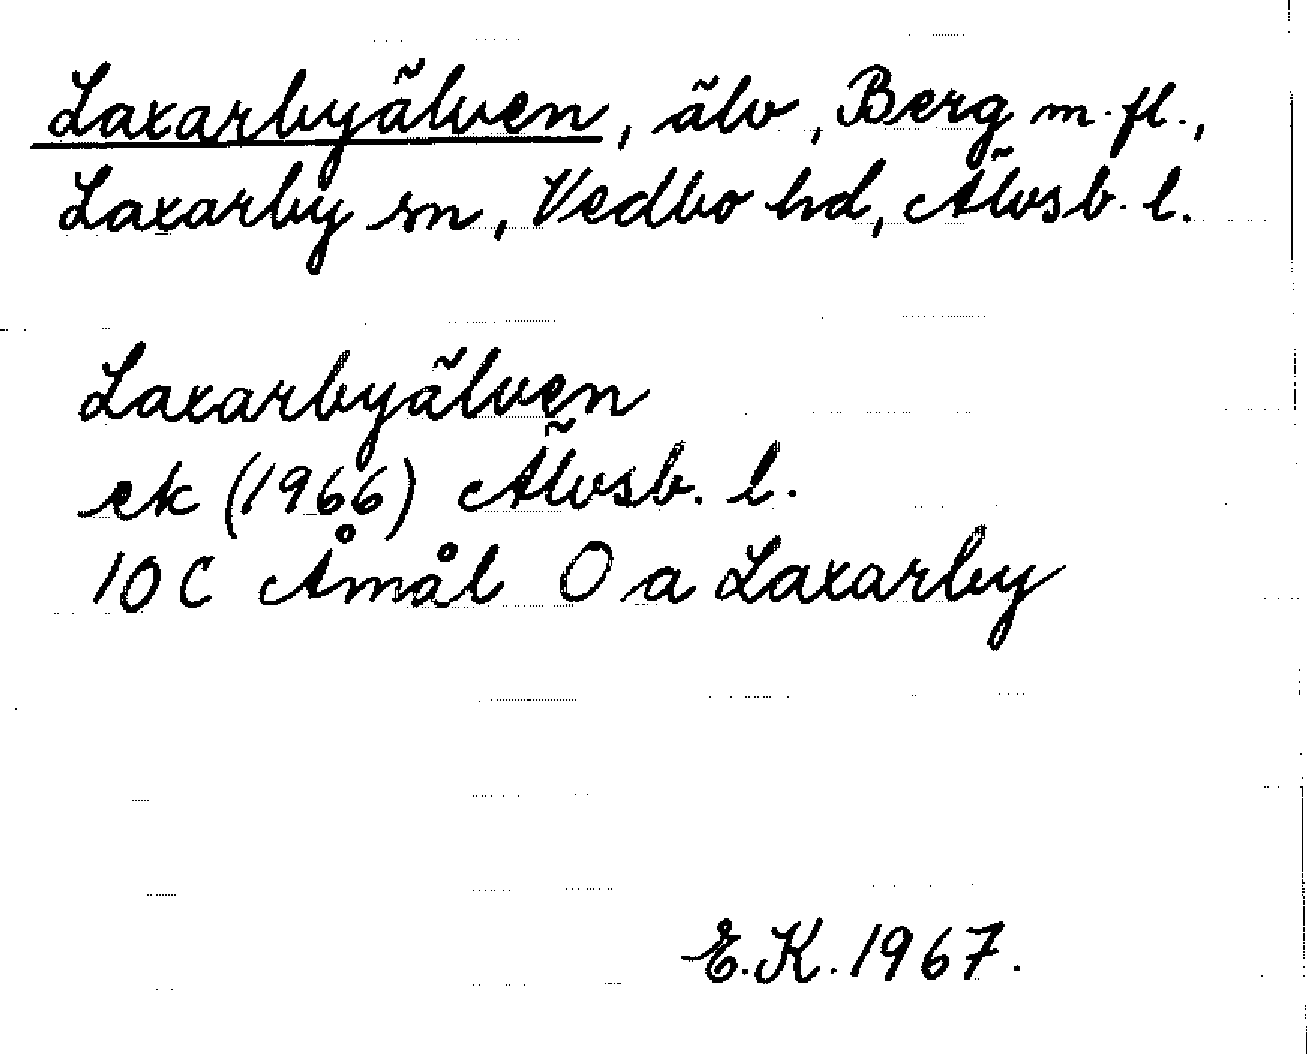 Laxarbyälven, älv, Berg m.fl.,
Laxarby sn, Vedbo hd, Älvsb. l.
Laxarbyälven
ek (1966) Älvsb. l.
10 C Åmål O a Laxarby
E.K. 1967.